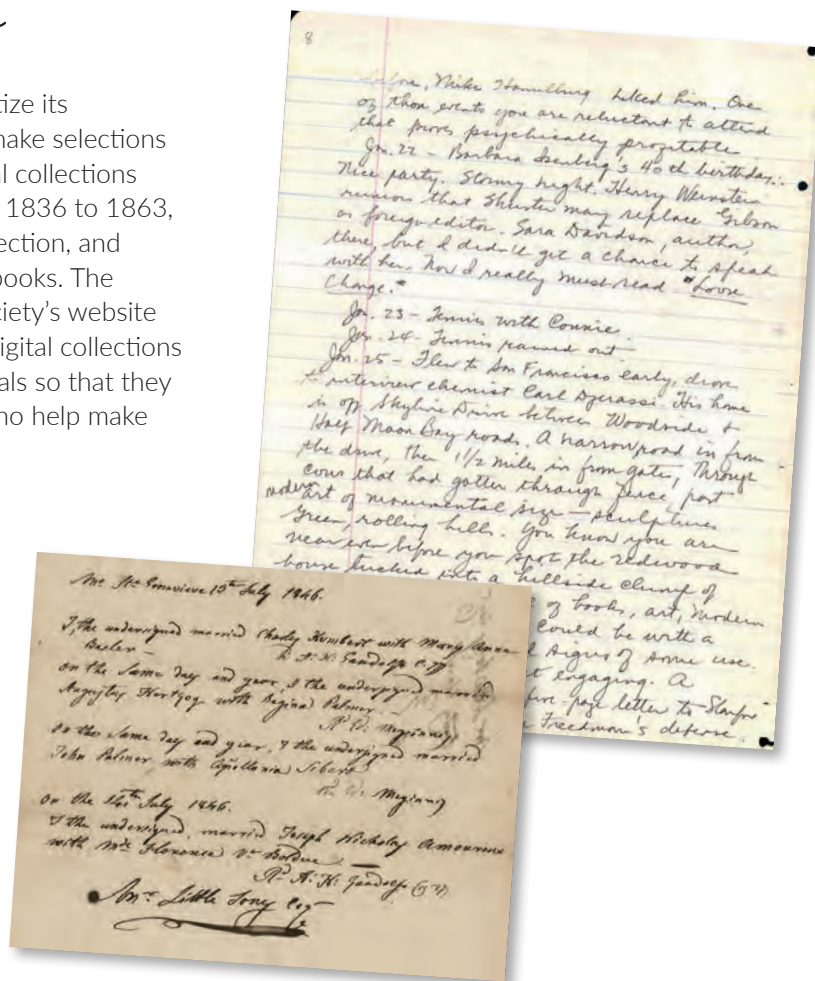 tize its
make selections
al collections
1836 to 1863,
ection, and
books. The
ciety's website
digital collections
als so that they
ho help make
8
before, Mike Hamilburg liked him. One
of those events you are reluctant to attend
that proves psychically profitable
Jan. 22 – Barbara Isenberg's 40th birthday.
Nice party. Stormy night. Henry Weinstein
rumors that Shuster may replace Gibson
as foreign editor. Sara Davidson, author,
there, but I didn't get a chance to speak
with her. Now I really must read "Loose
Change."
Jan. 23 – Tennis with Connie.
Jan. 24 – Tennis rained out
Jan. 25 – Flew to San Francisco early, drove
to interview chemist Carl Djerassi. His home
is off Skyline Drive between Woodside &
Half Moon Bay roads. A narrow road in from
the drive, then 1 1/2 miles in from gate, through
cows that had gotten through fence, past
modern art of monumental size – sculptures
Green, rolling hills. You know you are
near even before you spot the redwood
house tucked into a hillside clump of
of books, art, modern
could be with a
signs of some use.
t engaging. A
five-page letter to Stanford
Freedman's defense.
Mo. Ste. Genevieve 15th July 1846.
I, the undersigned married Charles Humbert with Mary Anne
Basler –
R. A. H. Gandolfo
on the same day and year, I the undersigned married
Augustus Hertzog with Regina Palmer.
Rd. W. Meginnis
on the same day and year, I the undersigned married
John Palmer with Apollonia Sibert
Rd. W. Meginnis
on the 14th July 1846.
I the undersigned, married Joseph Nicholas Amoureux
with Mde Florence Ve Bolduc
Rd A. H. Gandolfo
Mr. Little Tony Esq